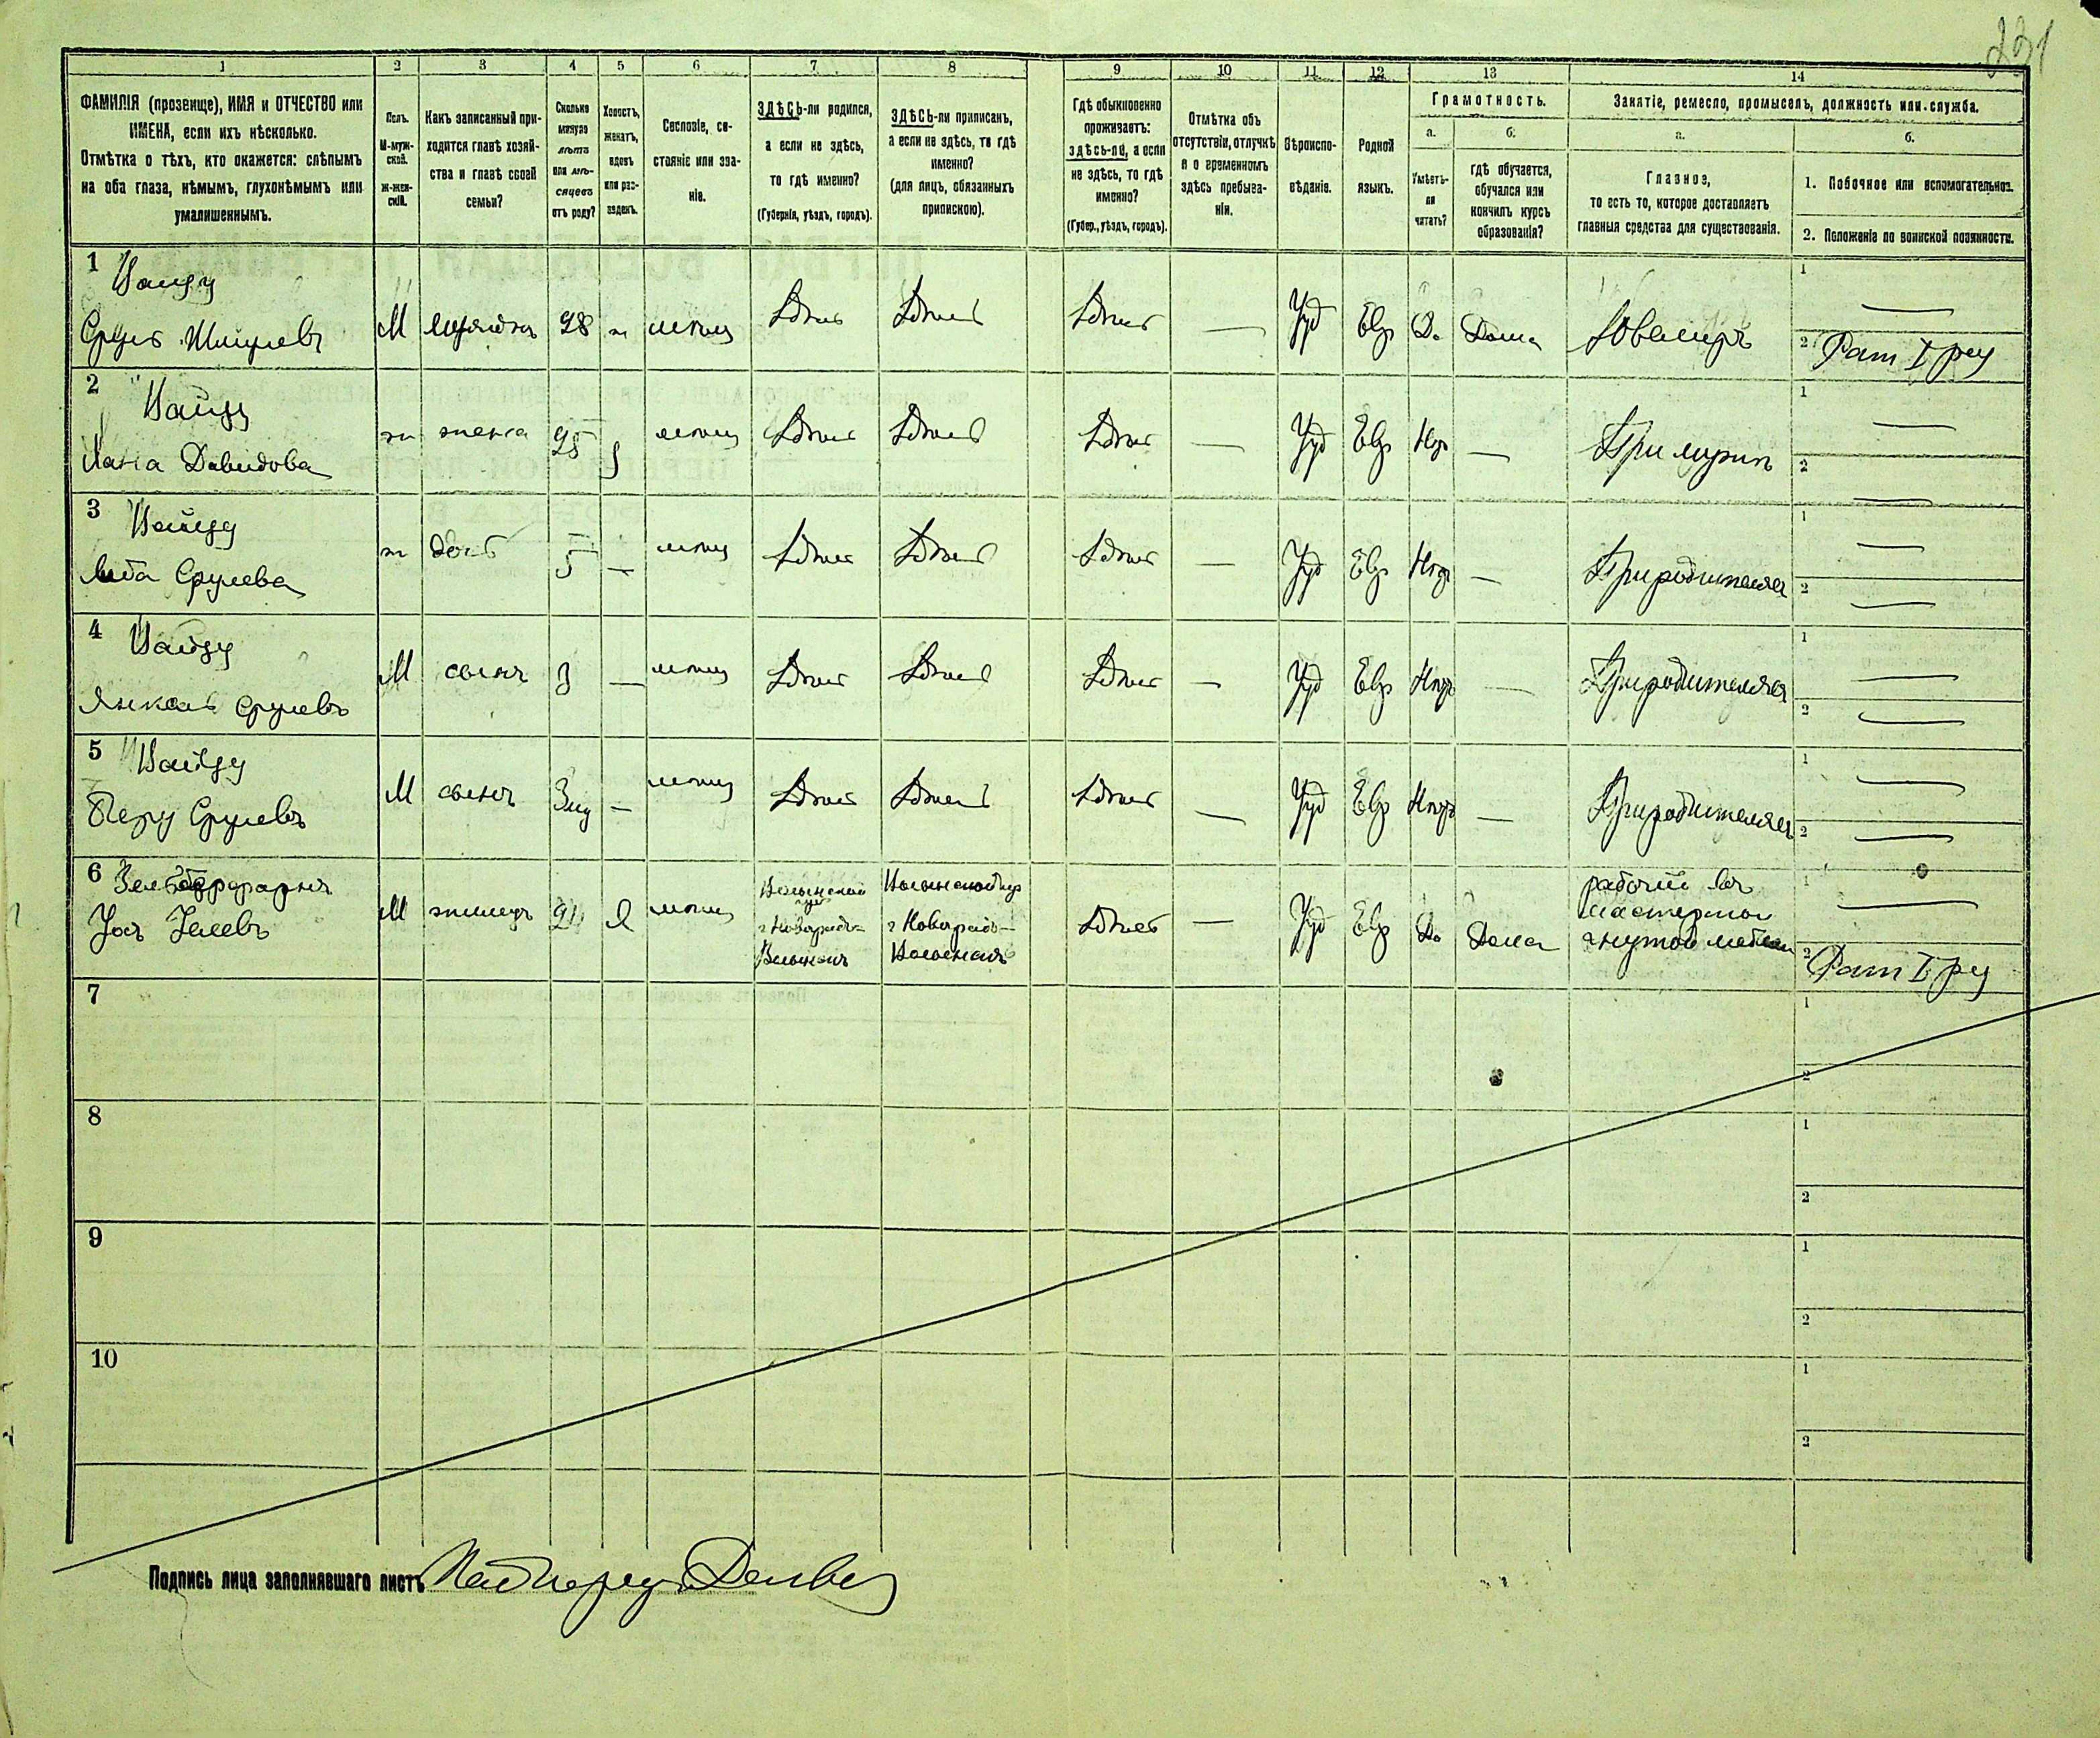 231
1 2 3 4 5 6 7 8 9 10 11 12 13 14
ФАМИЛІЯ (прозвище), ИМЯ и ОТЧЕСТВО или
ИМЕНА, если ихъ нѣсколько.
Отмѣтка о тѣхъ, кто окажется: слѣпымъ
на оба глаза, нѣмымъ, глухонѣмымъ или
умалишеннымъ.
Полъ.
М-муж-
ской.
Ж-жен-
скій.
Какъ записанный при-
ходится главѣ хозяй-
ства и главѣ своей
семьи?
Сколько
минуло
лѣтъ
или мѣ-
сяцевъ
отъ роду?
Холостъ,
женатъ,
вдовъ
или раз-
веденъ.
Сословіе, со-
стояніе или зва-
ніе.
ЗДѢСЬ-ли родился,
а если не здѣсь,
то гдѣ именно?
(Губернія, уѣздъ, городъ).
ЗДѢСЬ-ли приписанъ,
а если не здѣсь, то гдѣ
именно?
(для лицъ, обязанныхъ
припискою).
Гдѣ обыкновенно
проживаетъ:
здѣсь-ли, а если
не здѣсь, то гдѣ
именно?
(Губер., уѣздъ, городъ).
Отмѣтка объ
отсутствіи, отлучкѣ
и о временномъ
здѣсь пребыва-
ніи.
Вѣроиспо-
вѣданіе.
Родной
языкъ.
Грамотность.
а.
Умѣетъ-
ли
читать?
б.
гдѣ обучается,
обучался или
кончилъ курсъ
образованія?
Занятіе, ремесло, промыселъ, должность или служба.
а.
Главное,
то есть то, которое доставляетъ
главныя средства для существованія.
б.
1. Побочное или вспомогательное.
2. Положеніе по воинской повинности.
1
Сруль
М 28 ж Здѣсь Здѣсь Здѣсь — Іуд Евр Да Дома Ювелиръ
1 —
2 Рат I раз
2
Хана Давидова
ж жена 25 Здѣсь Здѣсь Здѣсь — Іуд Евр Нѣтъ — При мужѣ
1 —
2 —
3
Срулева
ж дочь 5 — Здѣсь Здѣсь Здѣсь — Іуд Евр Нѣтъ — При родителяхъ
1 —
2 —
4
Янкель Срулевъ
М сынъ 3 — Здѣсь Здѣсь Здѣсь — Іуд Евр Нѣтъ — При родителяхъ
1 —
2 —
5
Срулевъ
М сынъ — Здѣсь Здѣсь Здѣсь — Іуд Евр Нѣтъ — При родителяхъ
1 —
2 —
6
М жилецъ Здѣсь — Іуд Евр Да Дома
Волынской
г Новоградъ-
Волынскъ
Волынской губ
г Новоградъ-
Волынскъ
рабочій въ
мастерской
гнутой мебели
1 —
2 Рат I раз
7
1
2
8
1
2
9
1
2
10
1
2
Подпись лица заполнявшаго листъ